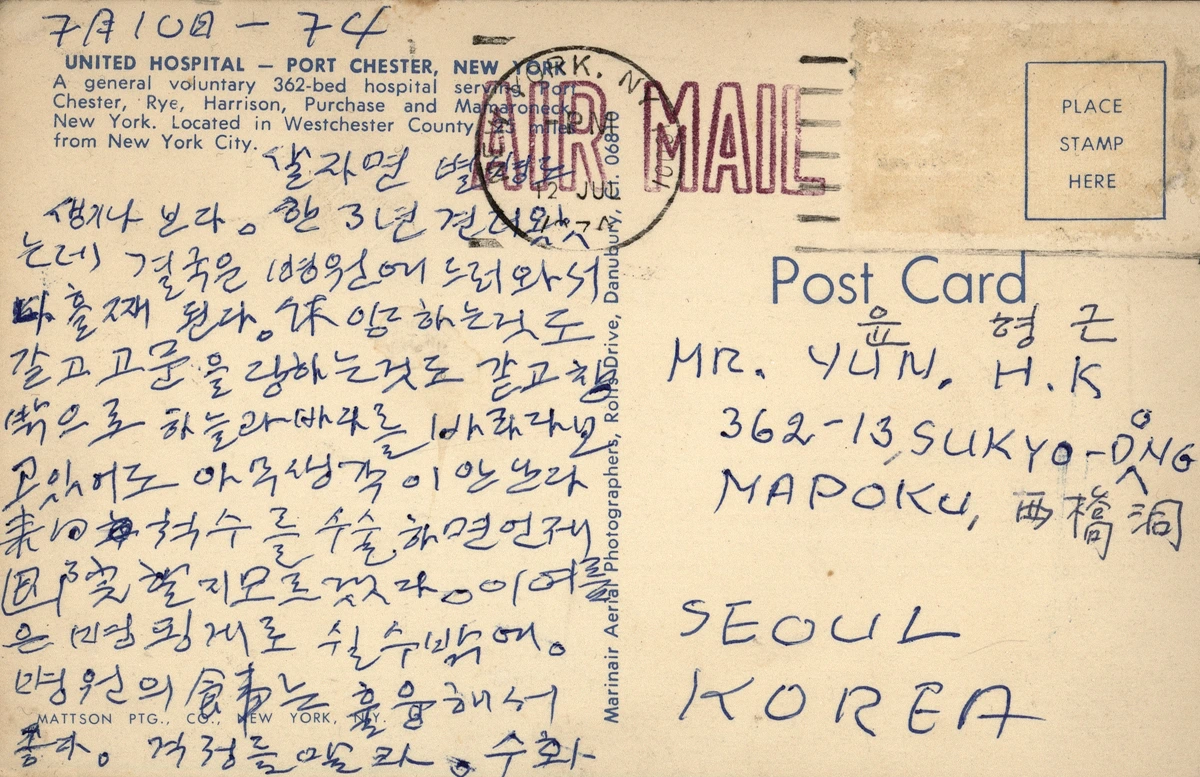 7月10日 - 74
UNITED HOSPITAL — PORT CHESTER, NEW YORK
A general voluntary 362-bed hospital serving Port
Chester, Rye, Harrison, Purchase and Mamaroneck,
New York. Located in Westchester County, 25 miles
from New York City.
살자면 별일도
생기나 보다. 한 3년 견디왔
는데 결국은 병원에 드러와서
사흘째 된다. 休암하는것도
갈고 고문을 당하는것도 같고 창
밖으로 하늘과 바다를 바라다보
고있어도 아무생각이 안난다
来日 척수를 수술하면 언제
退院할지 모르겠다. 이여름
은 병핑게로 쉴수밖에.
병원의 食事는 훌륭해서
좋다. 걱정을 말라. 수화
MATTSON PTG., CO., NEW YORK, N.Y.
Marinair Aerial Photographers, Rolfs Drive, Danubury, Ct. 06810
AIR MAIL
NEW YORK, N.Y.
PM
12 JUL
PLACE
STAMP
HERE
Post Card
윤 형근
MR. YUN, H.K
362-13, SUKYO-DONG
MAPOKU, 西橋洞
SEOUL
KOREA